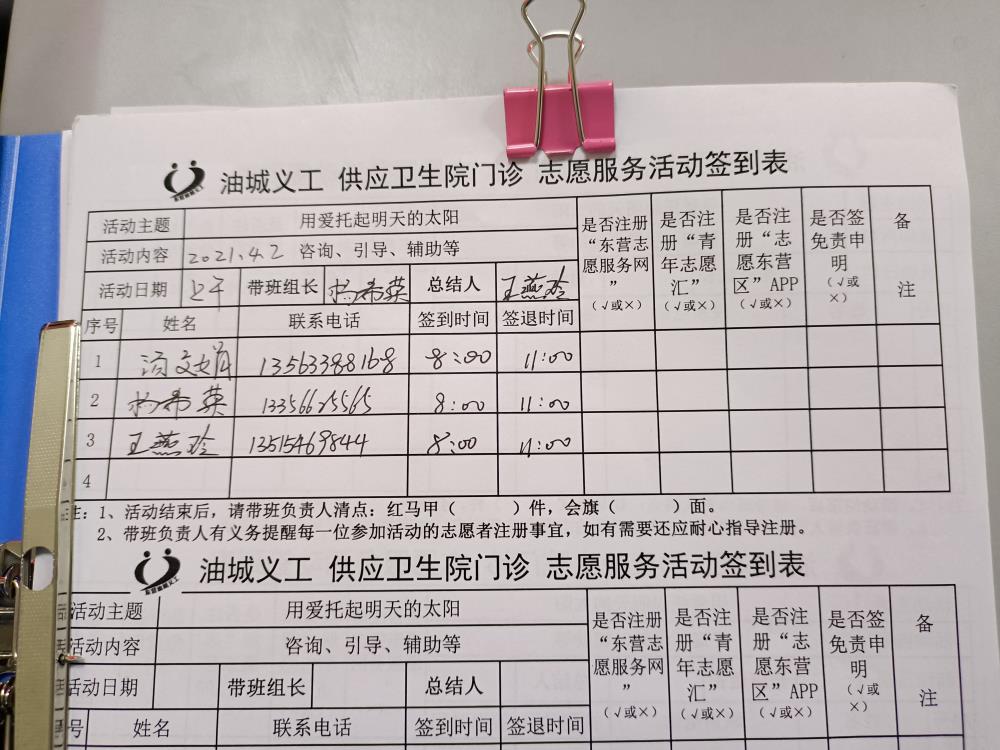 油城义工 供应卫生院门诊 志愿服务活动签到表
活动主题 用爱托起明天的太阳 是否注册“东营志愿服务网”(√或×) 是否注册“青年志愿汇”(√或×) 是否注册“志愿东营区”APP(√或×) 是否签免责申明(√或×) 备注
活动内容 2021.4.2 咨询、引导、辅助等
活动日期 上午 带班组长 杨希英 总结人 王燕玲
序号 姓名 联系电话 签到时间 签退时间
1 汤文娟 13563388168 8:00 11:00
2 杨希英 13356625565 8:00 11:00
3 王燕玲 13515469844 8:00 11:00
4
注：1、活动结束后，请带班负责人清点：红马甲（ ）件，会旗（ ）面。
2、带班负责人有义务提醒每一位参加活动的志愿者注册事宜，如有需要还应耐心指导注册。
油城义工 供应卫生院门诊 志愿服务活动签到表
活动主题 用爱托起明天的太阳 是否注册“东营志愿服务网”(√或×) 是否注册“青年志愿汇”(√或×) 是否注册“志愿东营区”APP(√或×) 是否签免责申明(√或×) 备注
活动内容 咨询、引导、辅助等
活动日期 带班组长 总结人
号 姓名 联系电话 签到时间 签退时间